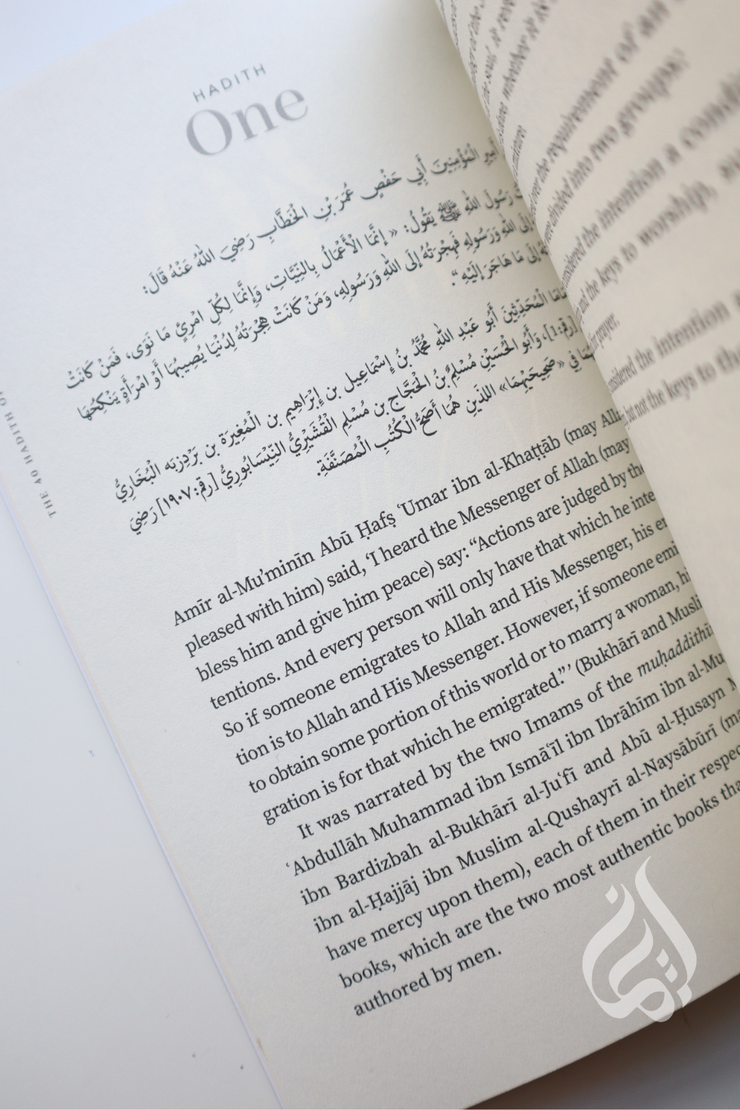 HADITH
One
الْمُؤْمِنِينَ أَبِي حَفْصٍ عُمَرَ بْنِ الْخَطَّابِ رَضِيَ اللَّهُ عَنْهُ قَالَ:
رَسُولَ اللَّهِ ﷺ يَقُولُ: « إِنَّمَا الْأَعْمَالُ بِالنِّيَّاتِ، وَإِنَّمَا لِكُلِّ امْرِئٍ مَا نَوَى، فَمَنْ كَانَتْ
إِلَى اللَّهِ وَرَسُولِهِ فَهِجْرَتُهُ إِلَى اللَّهِ وَرَسُولِهِ، وَمَنْ كَانَتْ هِجْرَتُهُ لِدُنْيَا يُصِيبُهَا أَوْ امْرَأَةٍ يَنْكِحُهَا
إِلَى مَا هَاجَرَ إِلَيْهِ".
الْمُحَدِّثِينَ أَبُو عَبْدِ اللَّهِ مُحَمَّدُ بْنُ إِسْمَاعِيل بن إِبْرَاهِيم بن الْمُغِيرَة بن بَرْدِزبَه الْبُخَارِيُّ
[رقم:1]، وَأَبُو الْحُسَيْنِ مُسْلِمُ بْنُ الْحَجَّاج بن مُسْلِم الْقُشَيْرِيُّ النَّيْسَابُورِيُّ [رقم:١٩٠٧] رَضِيَ
فِي «صَحِيحَيْهِمَا» اللذَينِ هُمَا أَصَحُّ الْكُتُبِ الْمُصَنَّفَةِ.
Amīr al-Mu'minīn Abū Ḥafṣ ʿUmar ibn al-Khaṭṭāb (may Alla
pleased with him) said, ‘I heard the Messenger of Allah (may
bless him and give him peace) say: “Actions are judged by the
tentions. And every person will only have that which he inte
So if someone emigrates to Allah and His Messenger, his em
tion is to Allah and His Messenger. However, if someone emi
to obtain some portion of this world or to marry a woman, hi
gration is for that which he emigrated.”’ (Bukhārī and Musli
It was narrated by the two Imams of the muḥaddithī
ʿAbdullāh Muhammad ibn Ismāʿīl ibn Ibrāhīm ibn al-Mu
ibn Bardizbah al-Bukhārī al-Juʿfī and Abū al-Ḥusayn M
ibn al-Ḥajjāj ibn Muslim al-Qushayrī al-Naysābūrī (ma
have mercy upon them), each of them in their respec
books, which are the two most authentic books tha
authored by men.
THE 40 HADITH O
the requirement of an
divided into two groups:
considered the intention a condi
and the keys to worship,
considered the intention a
but not the keys to th
prayer.